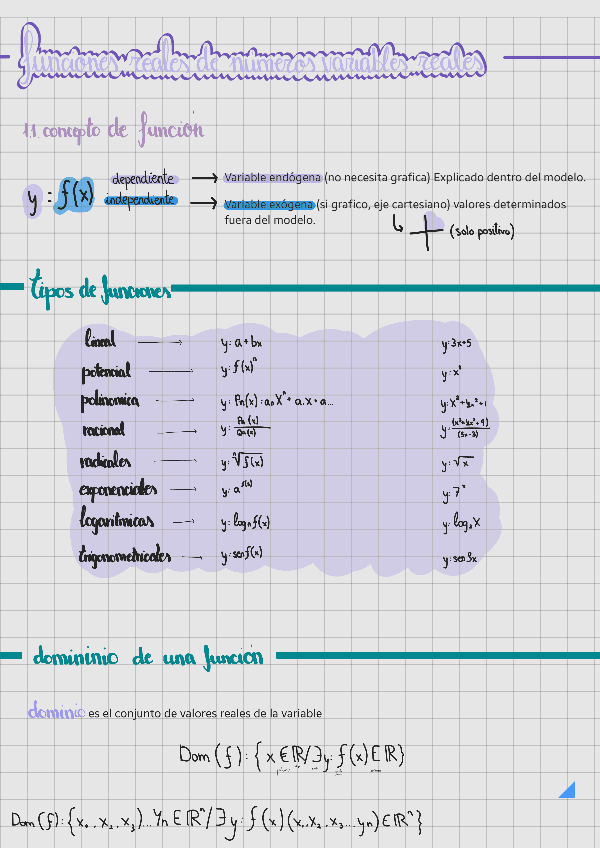 funciones reales de numeros variables reales
1.1. concepto de función
dependiente → Variable endógena (no necesita grafica) Explicado dentro del modelo.
y : f(x) independiente → Variable exógena (si grafico, eje cartesiano) valores determinados
fuera del modelo.
(solo positivo)
tipos de funciones
lineal → y: a + bx y: 3x+5
potencial → y: f(x)^n
polinomica → y: Pn(x)
racional → y: Pn(x)/Qn(x)
radicales → y: ⁿ√f(x) y: √x
exponenciales → y: a^f(x) y: 7^x
logaritmicas → y: logₙ f(x)
trigonometricales → y: sen f(x) y: sen 3x
domininio de una función
dominio es el conjunto de valores reales de la variable
Dom (f) : { x ∈ ℝ / ∃ y: f(x) ∈ ℝ}